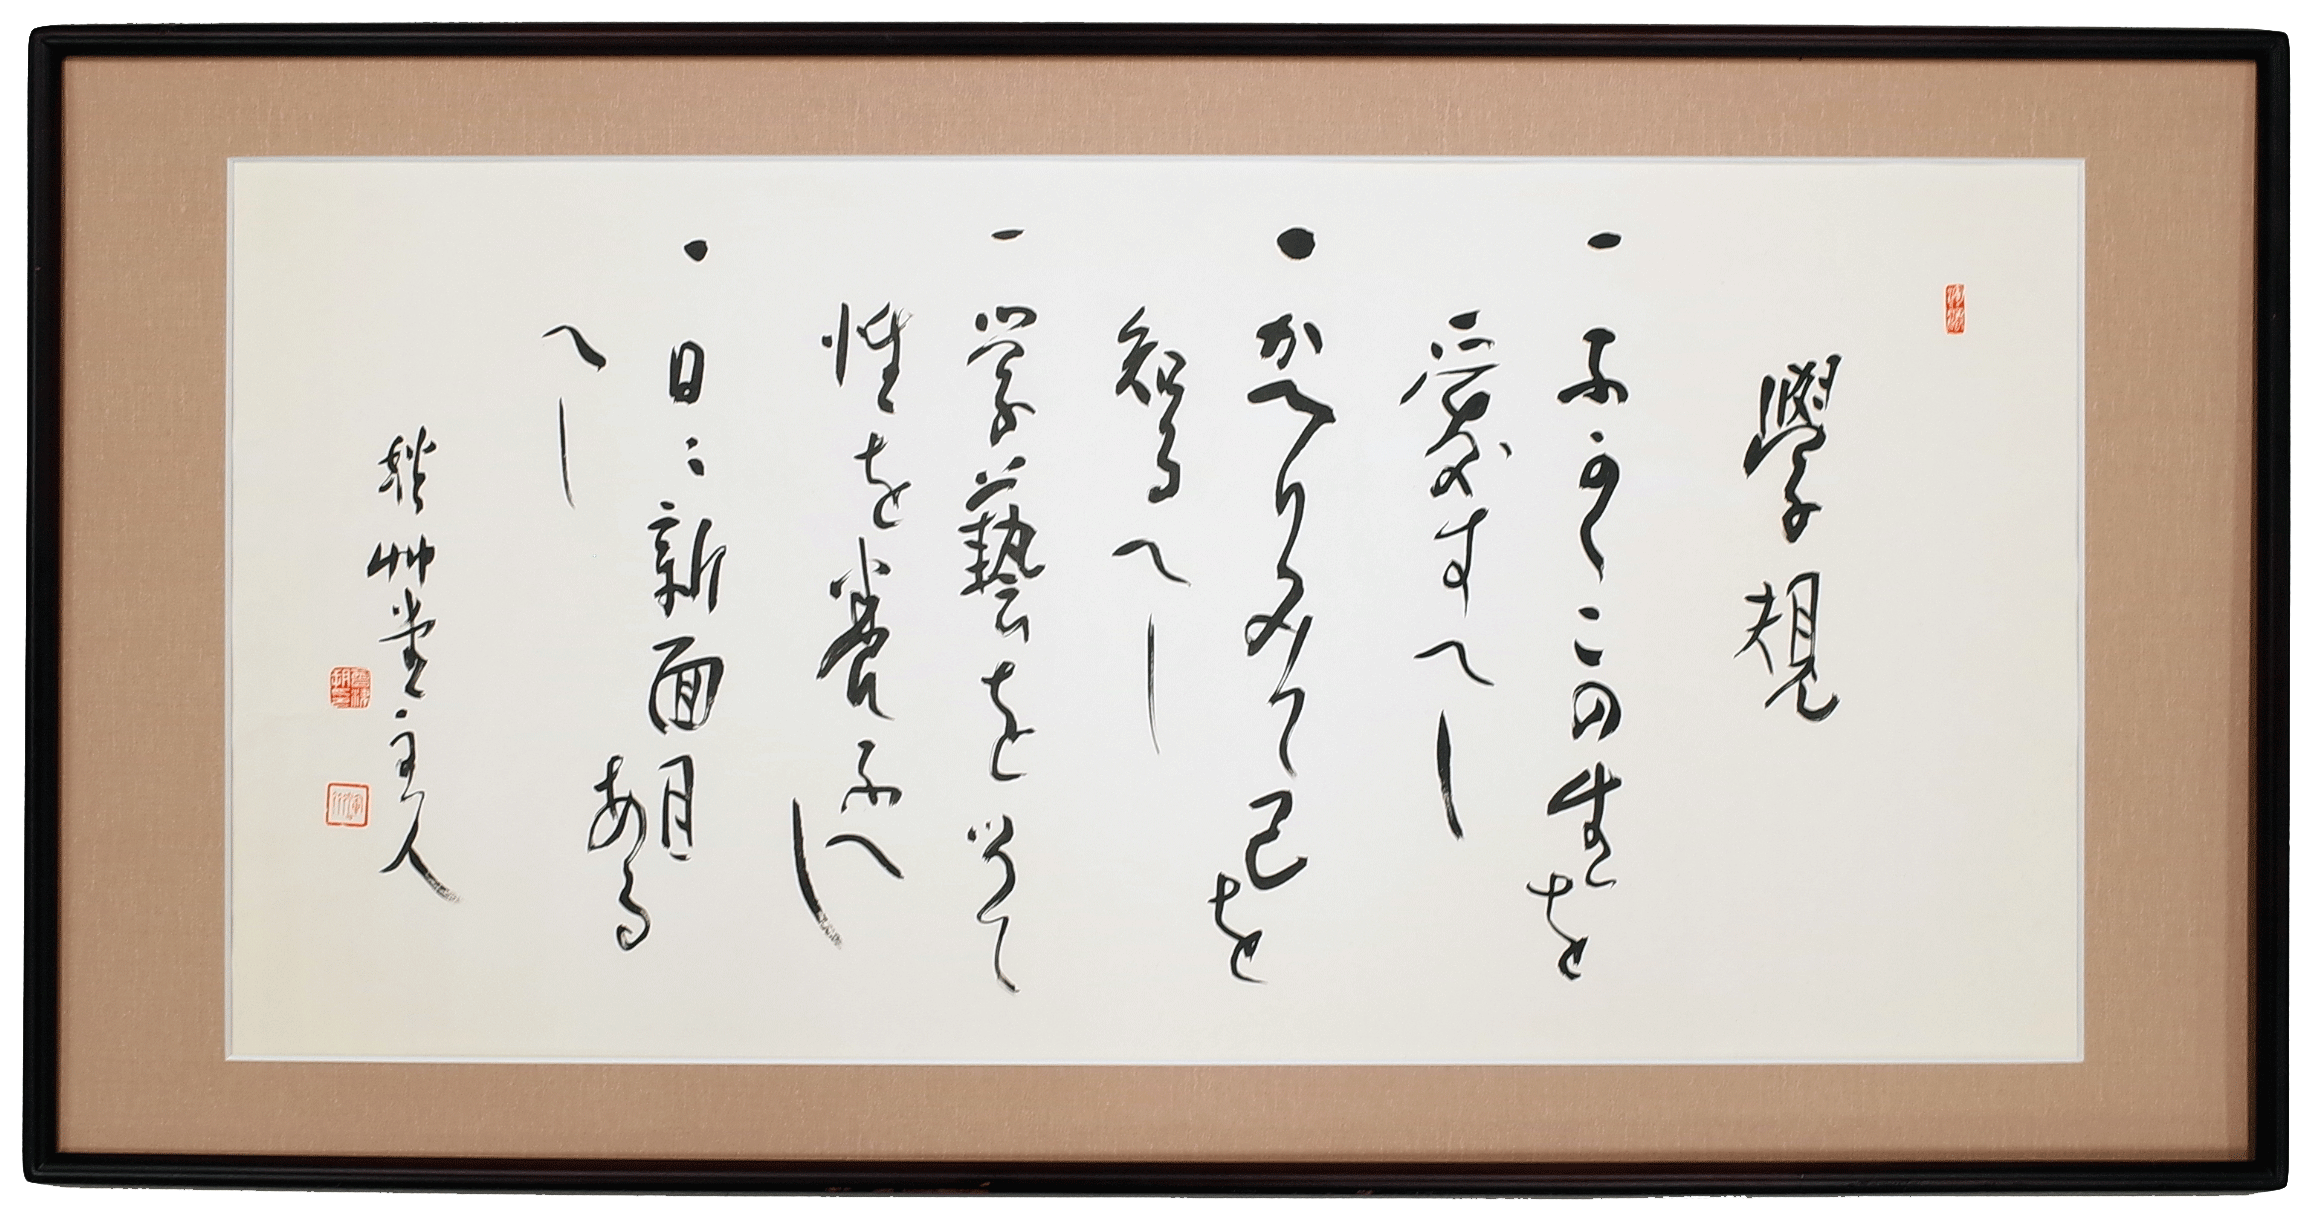 學規
一 ふかくこの生を
愛すへし
一 かへりみて己を
知るへし
一 学藝を以て
性を養ふへ
し
一 日ゝ新面目
ある
へし
秋艸堂主人